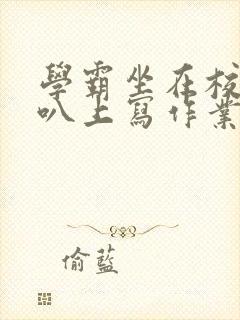 學霸坐在校
叭上寫作業
偷藍